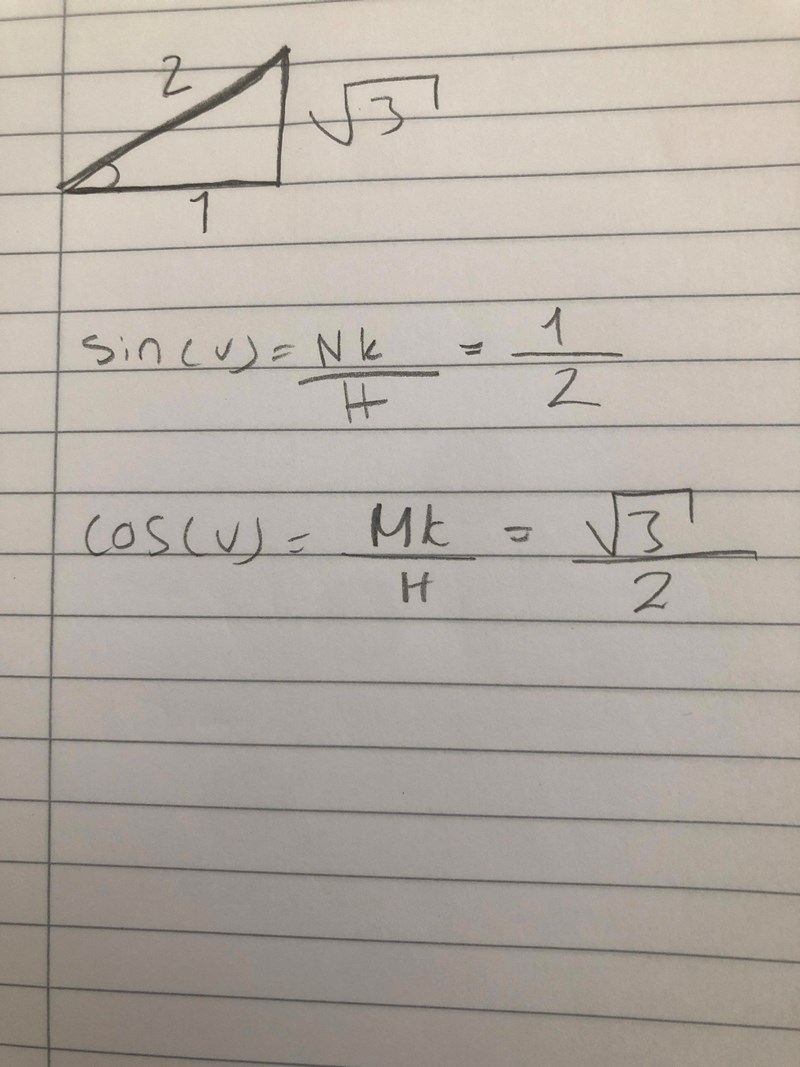 2
√3
1
sin(v) = Nk/H = 1/2
cos(v) = Mk/H = √3/2